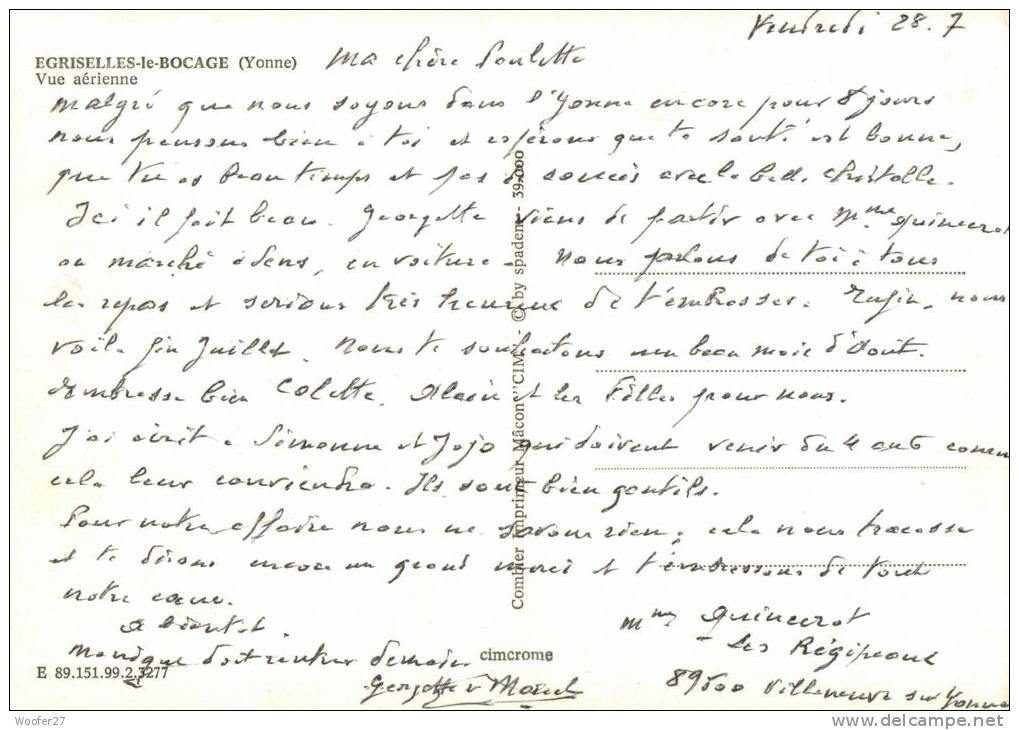 Vendredi 28.7
EGRISELLES-le-BOCAGE (Yonne)
Vue aérienne
Ma chère Poulette
Malgré que nous soyons dans l'Yonne encore pour 8 jours
nous pensons bien à toi et espérons que ta santé est bonne,
que tu as beau temps et pas de soucis avec la belle Christelle.
Ici il fait beau. Georgette viens de partir avec Mme Quincerot
au marché à Sens, en voiture. Nous parlons de toi à tous
les repas et serions très heureux de t'embrasser. Enfin, nous
voilà fin Juillet. Nous te souhaitons un beau mois d'Aout.
Embrasse bien Colette, Alain et les Filles pour nous.
J'ai écrit à Simonne et Jojo qui doivent venir du 4 au 6 comme
cela leur conviendra. Ils sont bien gentils.
Pour notre affaire nous ne savons rien, cela nous tracasse
et te disons encore un grand merci et t'embrassons de tout
notre cœur.
A Bientot.
Monique doit rentrer demain
Georgette & Marcel
Mme Quincerot
Les Régipeaux
89500 Villeneuve sur Yonne
Combier Imprimeur Mâcon "CIM" - © by spadem - 39-000
cimcrome
E 89.151.99.2.3277
Woofer27
http://www.delcampe.net